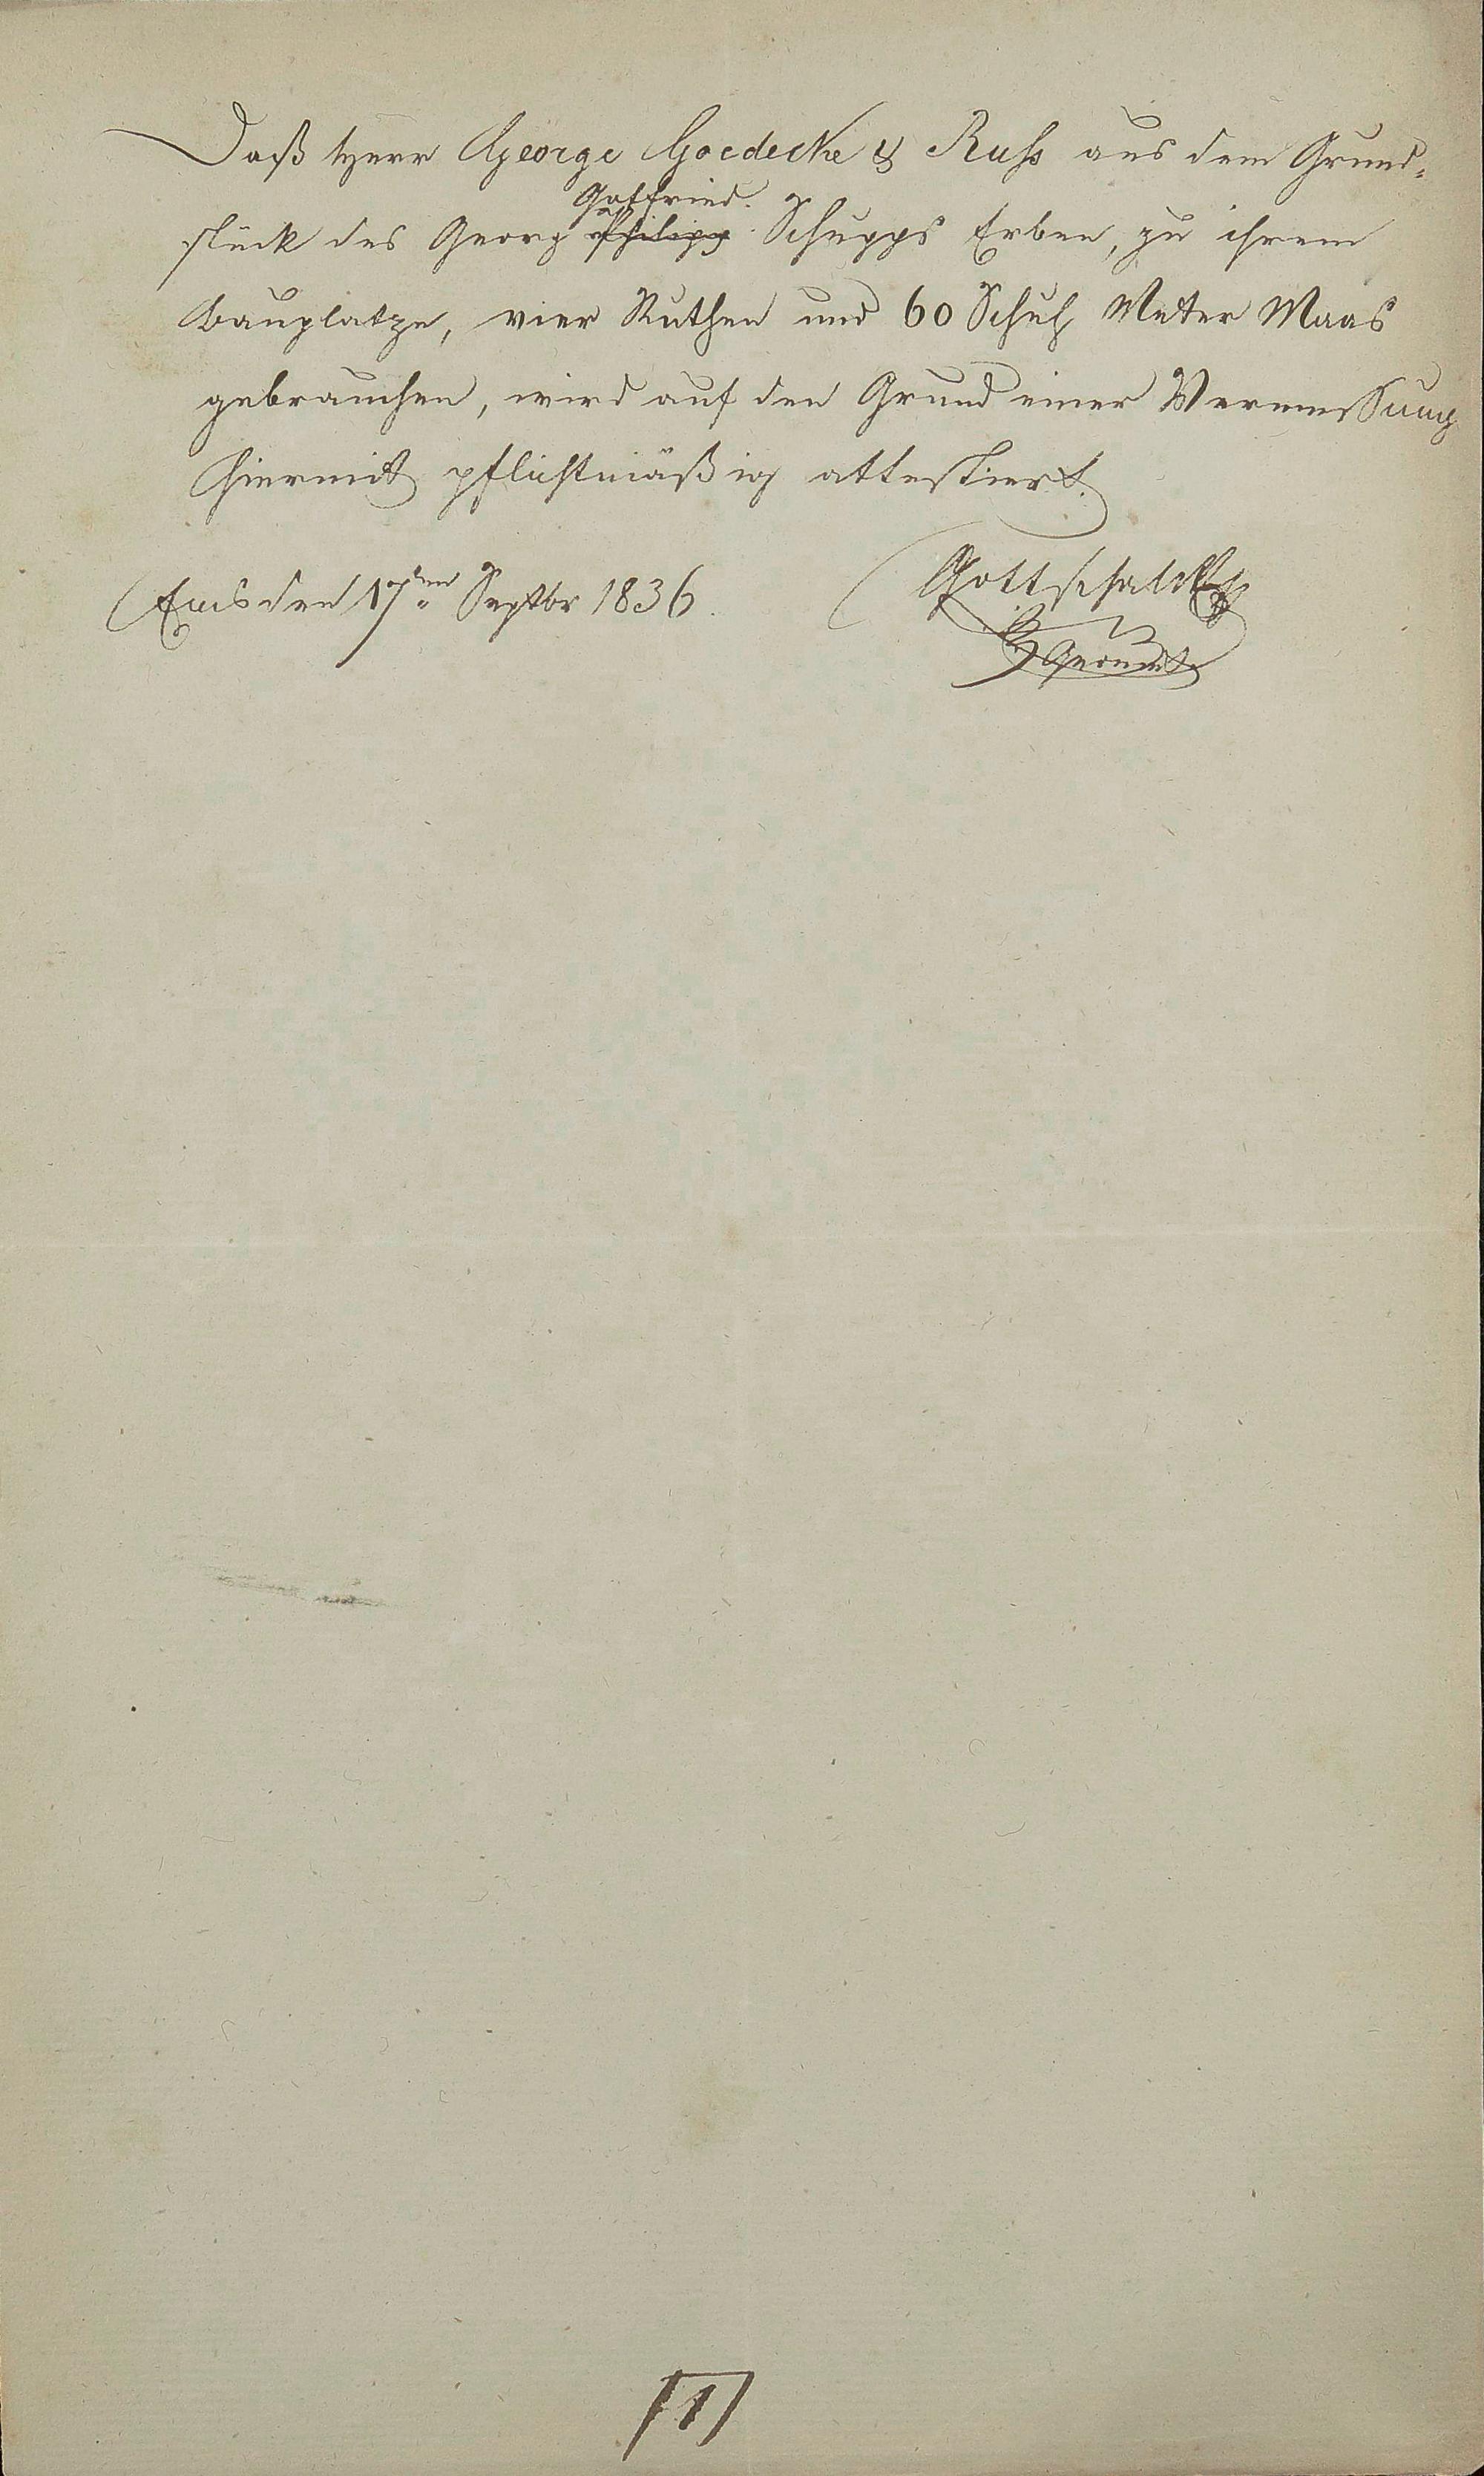 Daß Herr George Goedecke & Russ aus dem Grund-
Gottfried.
stück des Georg Philipp Schupps Erben, zu ihrem
Bauplatze, vier Ruthen und 60 Schuh Meter Maas
gebrauchen, wird auf den Grund einer Vermessung
hiermit pflichtmäßig attestiert.
Ems den 17ten Septbr 1836. Gottschalck
Geomet.
[1]